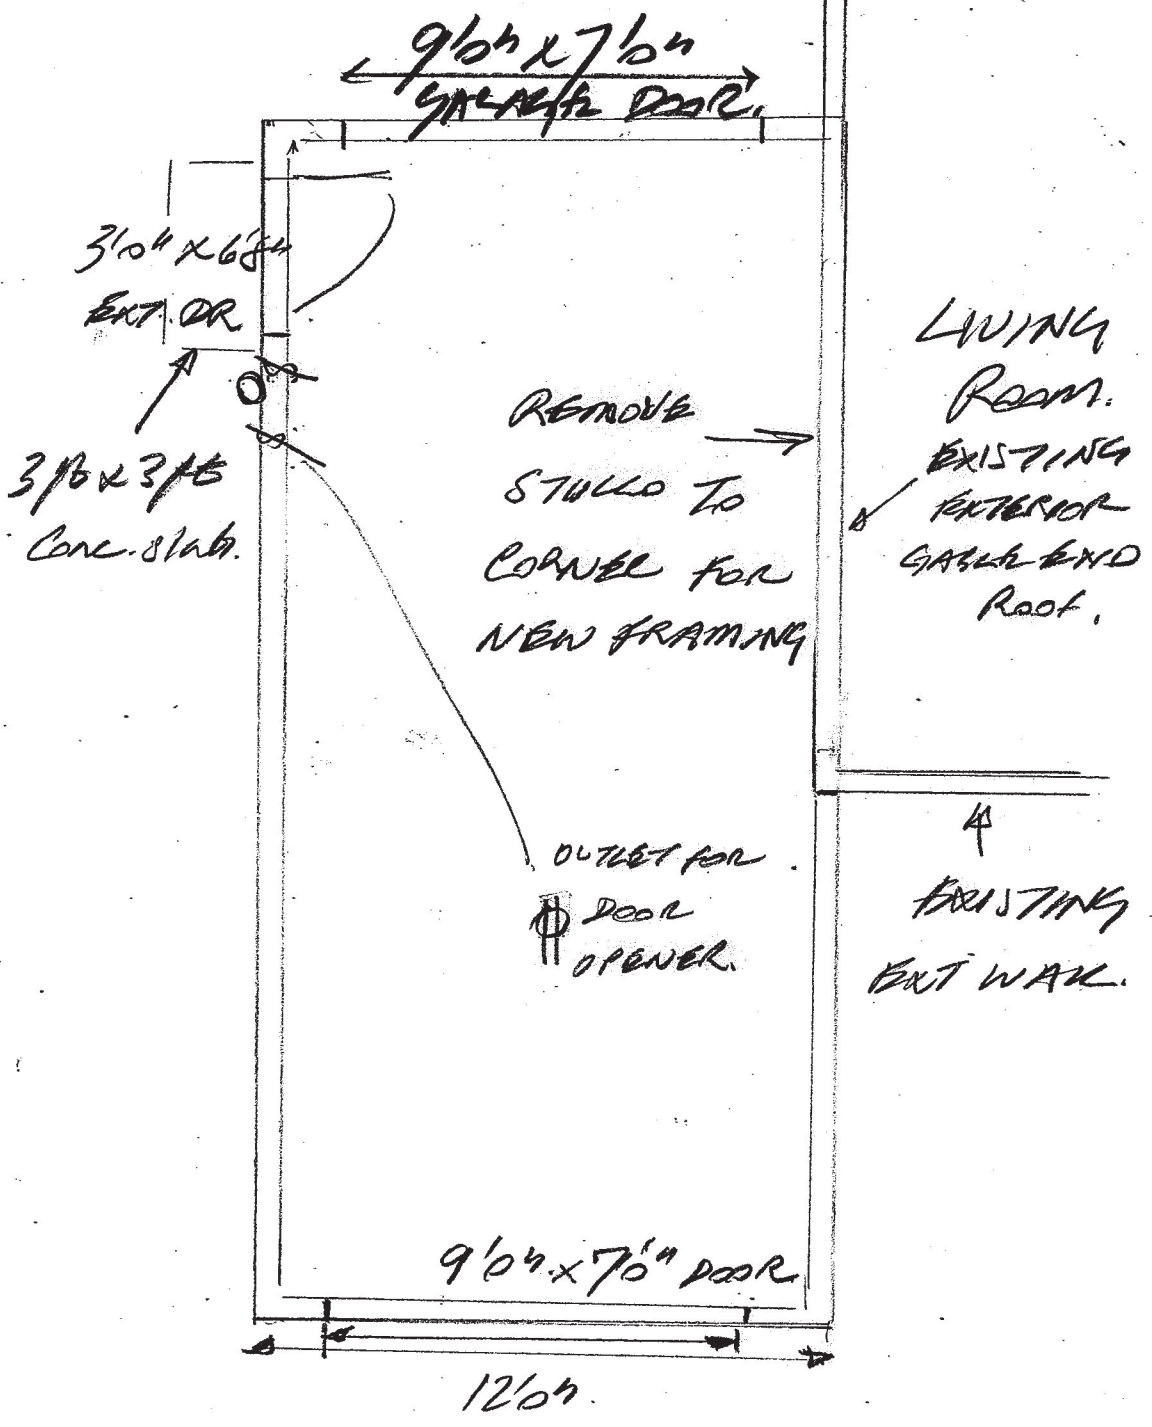 9'0" x 7'0"
GARAGE DOOR.
3'0" x 6'8"
EXT. DR
3 ft x 3 ft
Conc. slab.
REMOVE
STUCCO TO
CORNER FOR
NEW FRAMING
LIVING
ROOM.
EXISTING
EXTERIOR
GABLE END
ROOF.
OUTLET FOR
DOOR
OPENER.
EXISTING
EXT WALL.
9'0" x 7'0" DOOR
12'0".